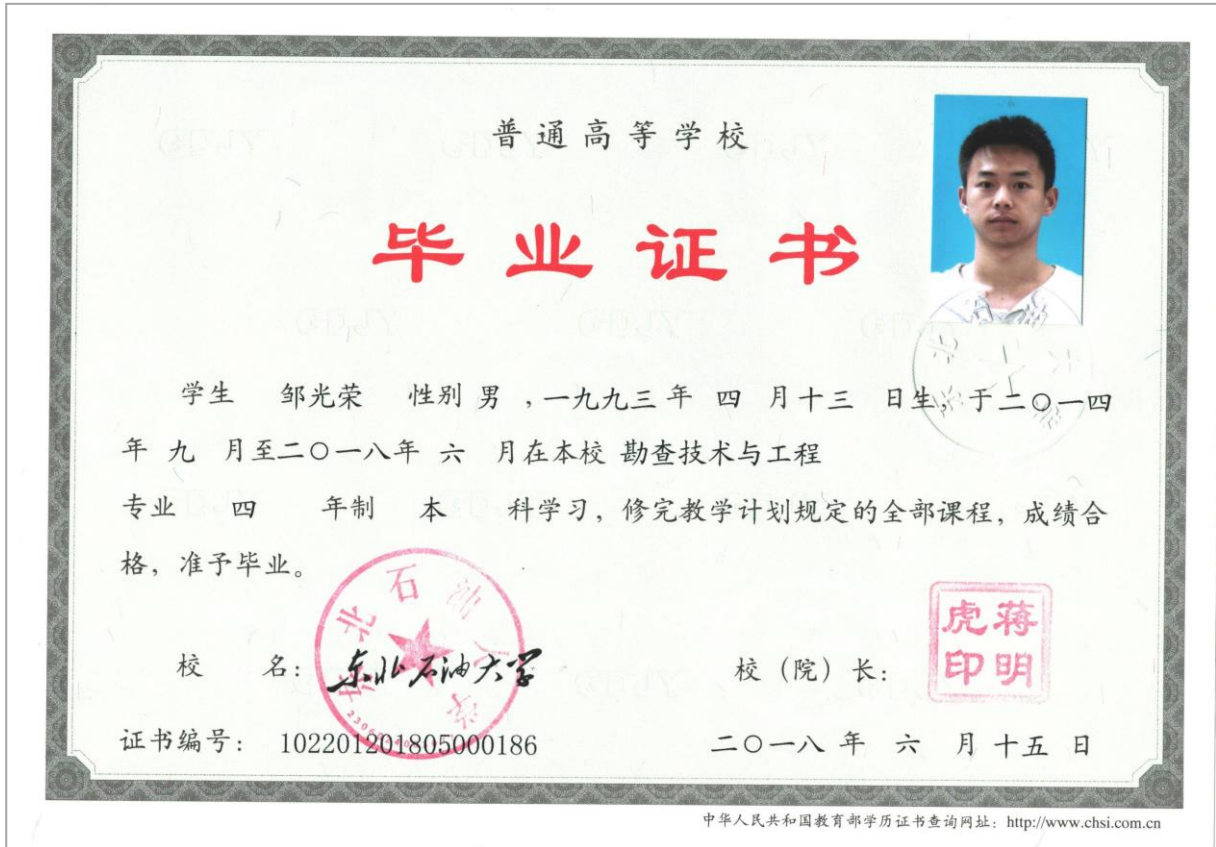 普通高等学校
毕业证书
学生 邹光荣 性别 男 ,一九九三 年 四 月十三 日生, 于二〇一四
年 九 月至二〇一八年 六 月在本校 勘查技术与工程
专业 四 年制 本 科学习, 修完教学计划规定的全部课程, 成绩合
格, 准予毕业。
校 名: 东北石油大学
东北石油大学
校 (院) 长:
蒋明虎印
证书编号: 102201201805000186
二〇一八 年 六 月 十五 日
中华人民共和国教育部学历证书查询网址: http://www.chsi.com.cn